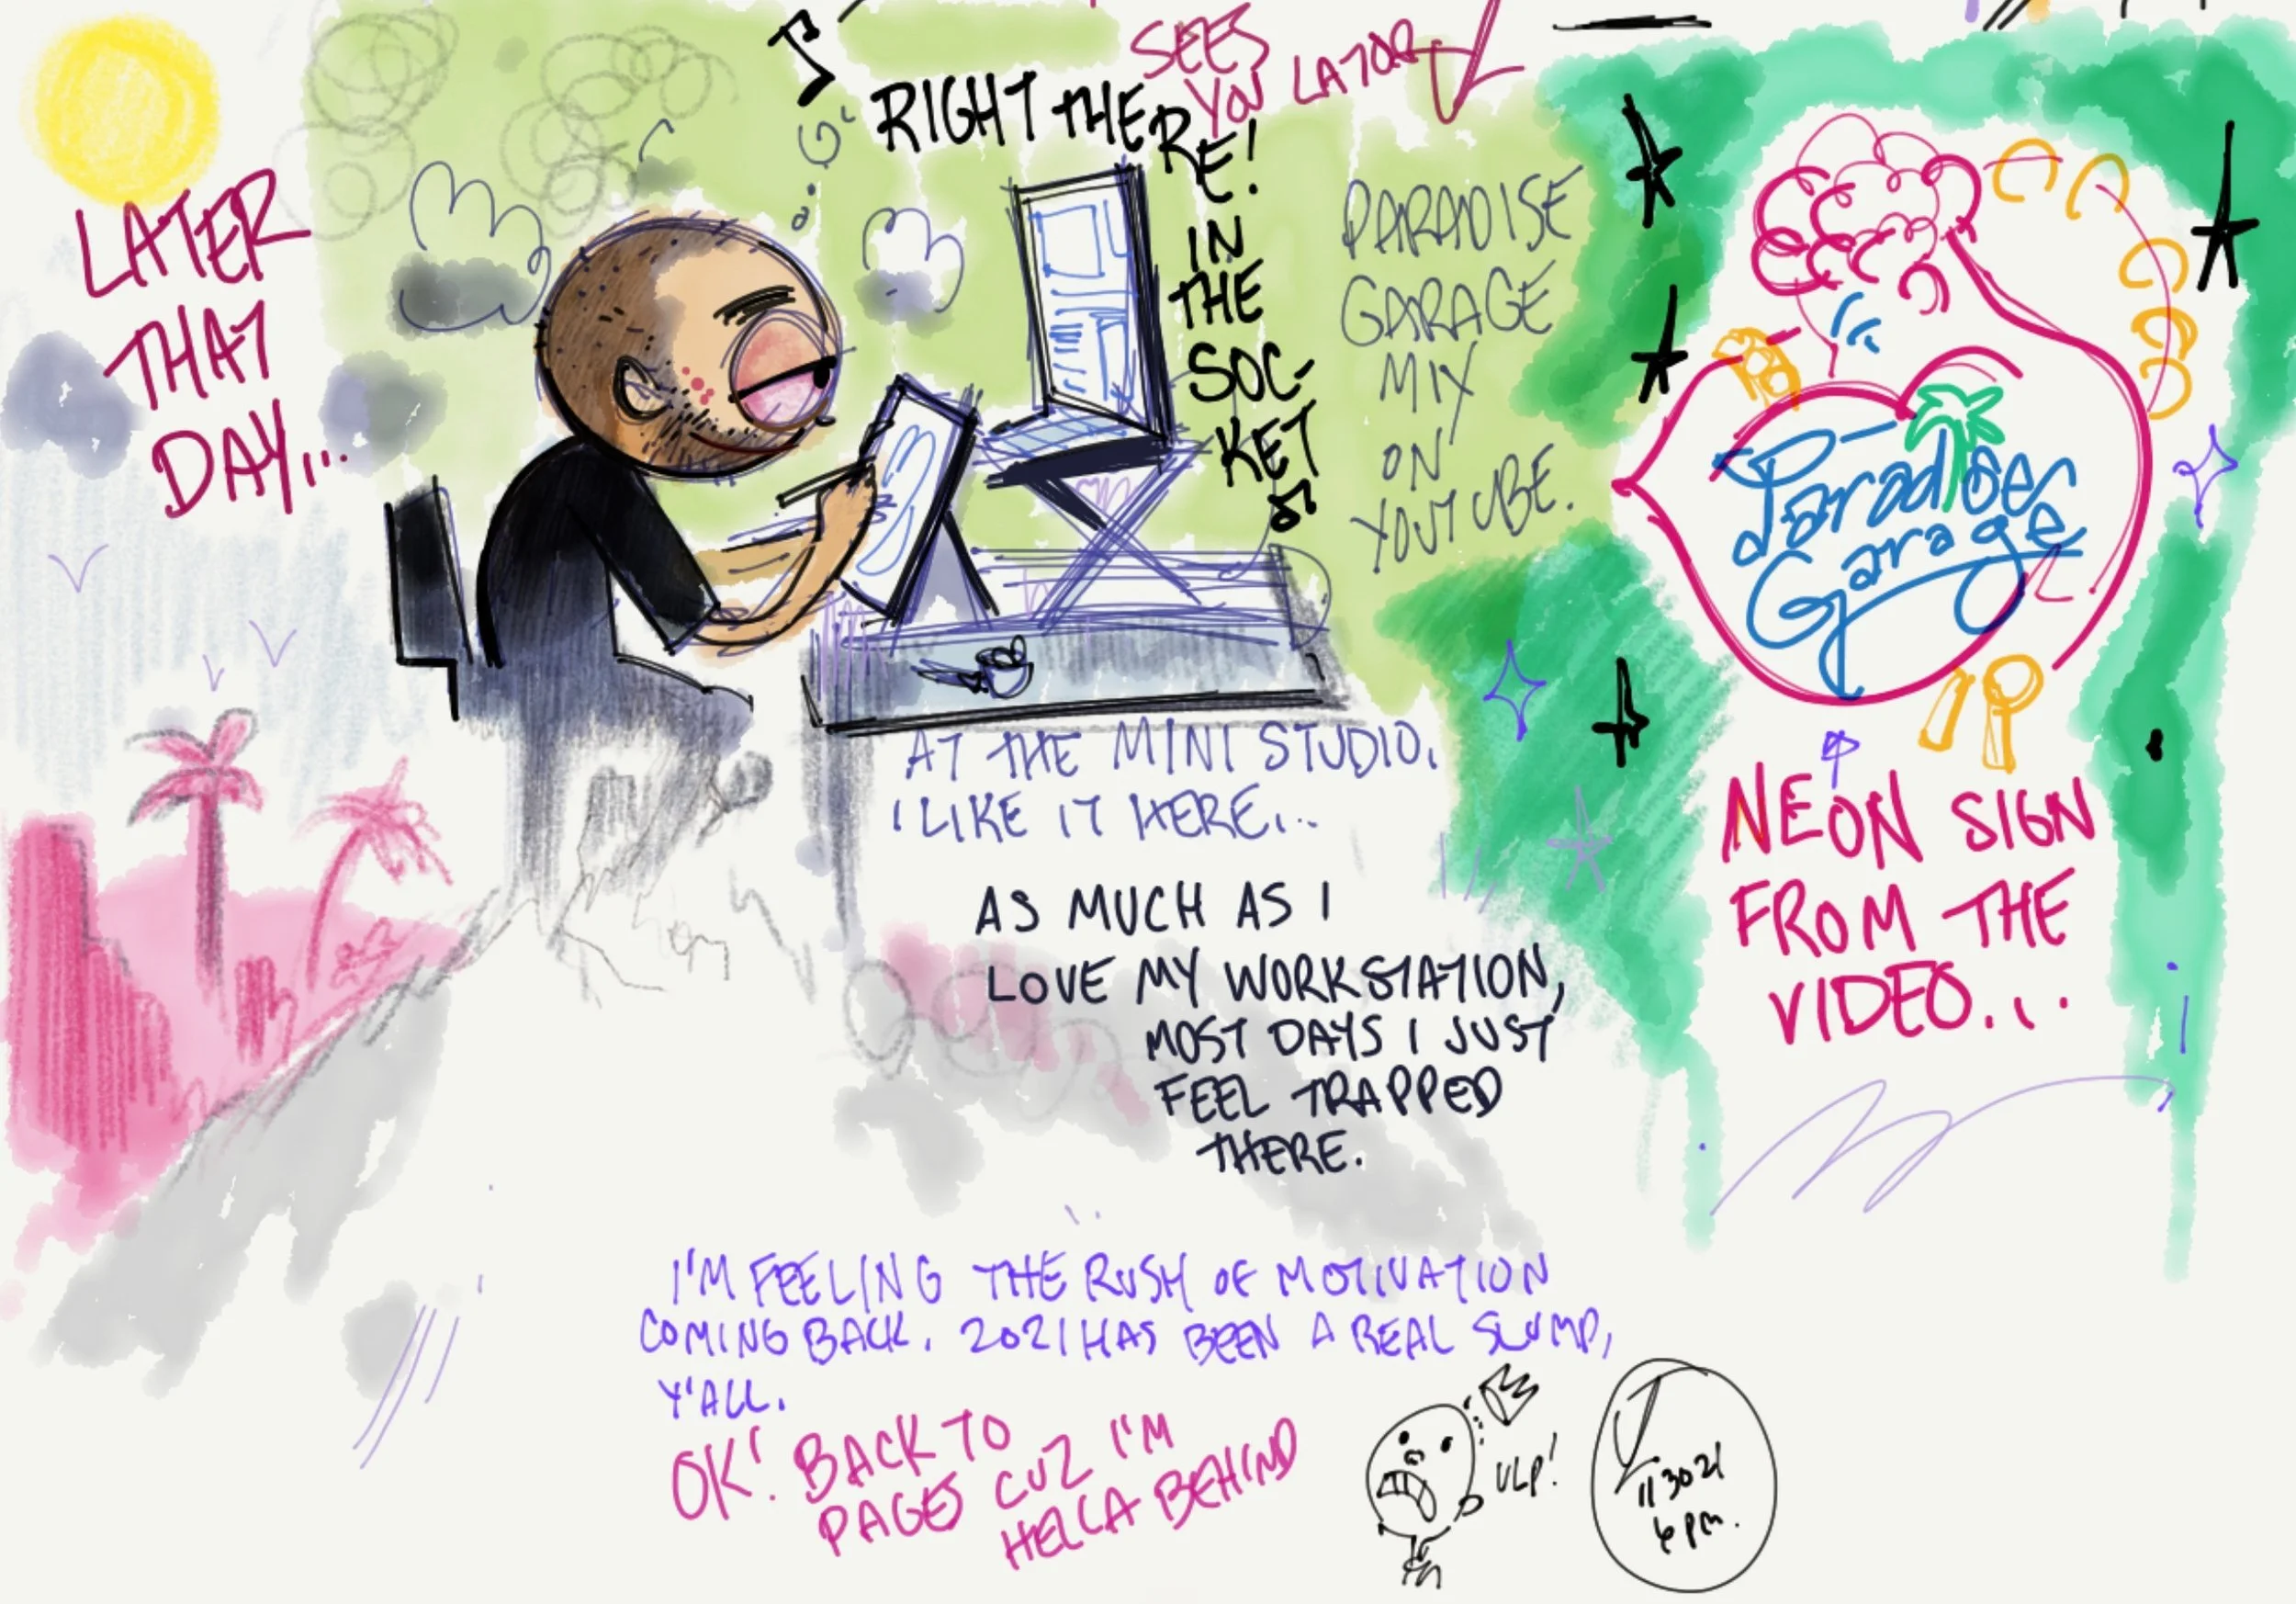 LATER
THAT
DAY...
SEES
YOU LATOR
RIGHT THERE!
IN
THE
SOC-
KET
PARADISE
GARAGE
MIX
ON
YOUTUBE.
Paradise
Garage
NEON SIGN
FROM THE
VIDEO...
AT THE MINI STUDIO.
I LIKE IT HERE...
AS MUCH AS I
LOVE MY WORKSTATION,
MOST DAYS I JUST
FEEL TRAPPED
THERE.
I'M FEELING THE RUSH OF MOTIVATION
COMING BACK. 2021 HAS BEEN A REAL SLUMP,
Y'ALL.
OK! BACK TO
PAGES CUZ I'M
HELLA BEHIND
ULP!
113021
6 PM.